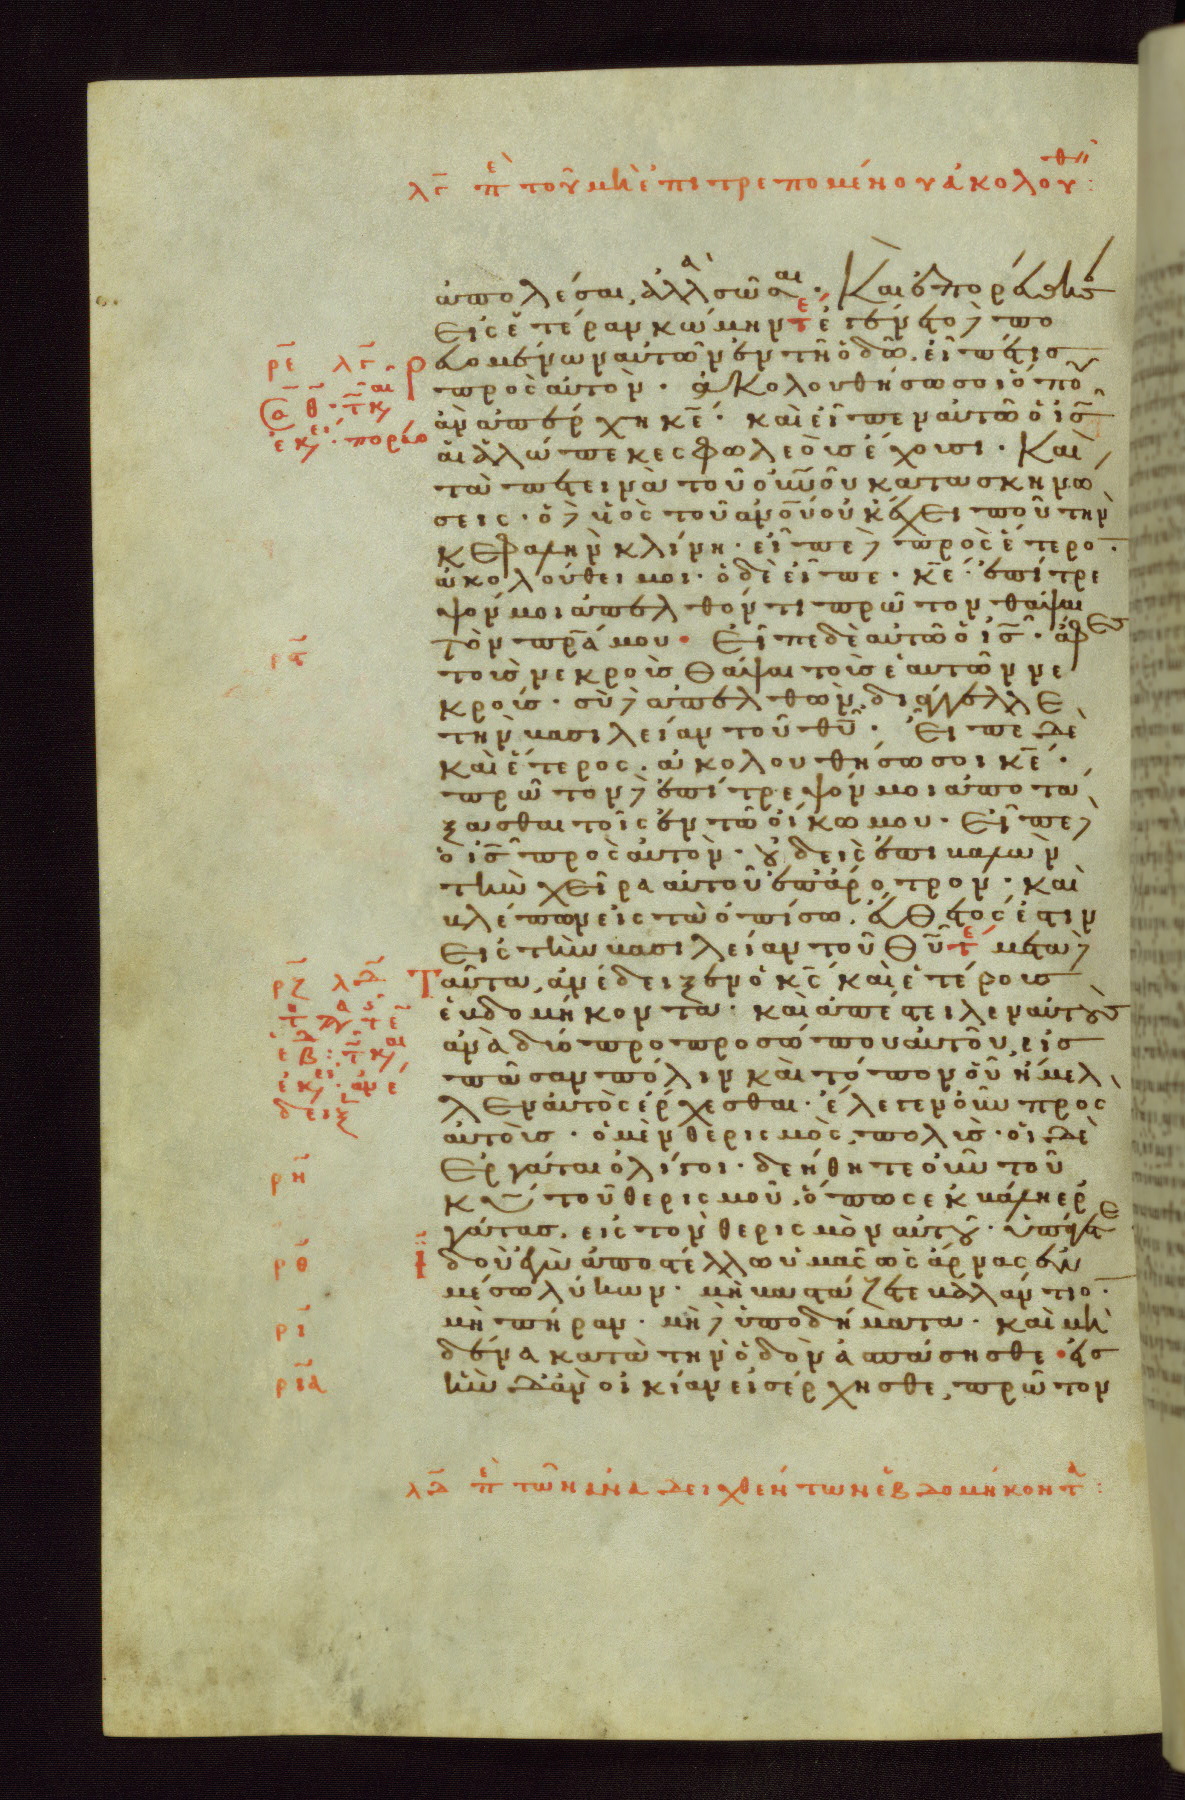 λς πε τοῦ μὴ ἐπιτρεπομένου ἀκολουθ:
ἀπολέσαι, ἀλλὰ σῶσαι. Καὶ ἐπορεύθησ
εἰς ἑτέραν κώμην τε ἐγένετο δὲ πο
ρε λς ρευομένων αὐτῶν ἐν τῆ ὁδῶ, εἶπε τισ
πρὸς αὐτόν. ἀκολουθήσω σοι ὅπου
ἂν ἀπέρχη κε. καὶ εἶπεν αὐτῶ ὁ ις
αἱ ἀλώπεκες φωλεοὺς ἔχουσι. Καὶ
τὰ πετεινὰ τοῦ οὐνοῦ κατασκηνώ
σεις. ὁ δὲ υἱὸς τοῦ ανου οὐκ ἔχει ποῦ τὴν
κεφαλὴν κλίνη. εἶπε δὲ πρὸς ἕτερον.
ἀκολούθει μοι. ὁ δὲ εἶπε. κε ἐπίτρε
ψόν μοι ἀπελθόντι πρῶτον θάψαι
ρς τὸν πρα μου. Εἶπε δὲ αὐτῶ ὁ ις. ἄφες
τοὺς νεκροὺς θάψαι τοὺς ἑαυτῶν νε
κρούς. σὺ δὲ ἀπελθὼν, διάγγελλε
τὴν βασιλείαν τοῦ θυ. Εἶπε δὲ
καὶ ἕτερος. ἀκολουθήσω σοι κε.
πρῶτον δὲ ἐπίτρεψόν μοι ἀποτά
ξασθαι τοῖς ἐν τῶ οἴκω μου. Εἶπε δὲ
ὁ ις πρὸς αὐτόν. οὐδεὶς ἐπιβαλὼν
τὴν χεῖρα αὐτοῦ ἐπ' ἄροτρον. καὶ
βλέπων εἰς τὰ ὀπίσω, εὔθετος ἐστιν
εἰς τὴν βασιλείαν τοῦ Θυ τε μετὰ δὲ
ρζ λδ Ταῦτα, ἀνέδειξεν ὁ κς καὶ ἑτέρους
ἑβδομήκοντα. καὶ ἀπέστειλεν αὐτοὺς
ἀνὰ δύο πρὸ προσώπου αὐτοῦ, εἰς
πᾶσαν πόλιν καὶ τόπον οὗ ἤμελ
λεν αὐτὸς ἔρχεσθαι. ἔλεγεν οὖν πρὸς
αὐτούς. ὁ μὲν θερισμὸς, πολύς. οἱ δὲ
ρη ἐργάται ὀλίγοι. δεήθητε οὖν τοῦ
κυ τοῦ θερισμοῦ, ὅπως ἐκβάλη ἐρ
γάτας, εἰς τὸν θερισμὸν αὐτοῦ. ὑπάγετε
ρθ ἰδοὺ ἐγὼ ἀποστέλλω ὑμᾶς ὡς ἄρνας ἐν
μέσω λύκων. μὴ βαστάζετε βαλάντιον.
ρι μὴ πήραν. μὴ δὲ ὑποδήματα. καὶ μη
δένα κατὰ τὴν ὁδὸν ἀσπάσησθε. εἰς
ρια ἣν δ' ἂν οἰκίαν εἰσέρχησθε, πρῶτον
λδ πε τῶν ἀναδειχθέντων ἑβδομήκοντα: